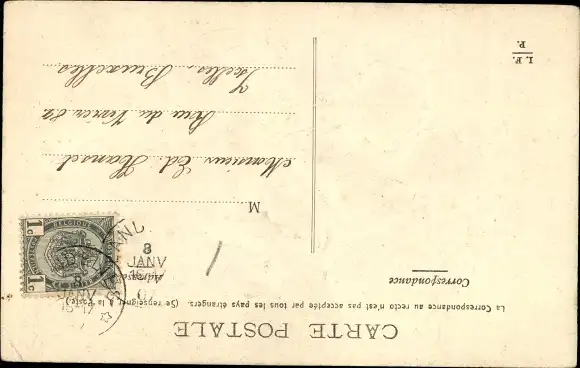 CARTE POSTALE
La Correspondance au recto n'est pas acceptée par tous les pays étrangers. (Se renseigner à la Poste)
Correspondance
Adresse
M
Monsieur Ed. Hansel
Rue du Vivier 82
Ixelles, Bruxelles
BELGIQUE
1c 1c
8
JANV
8
JANV
I. F.
P.